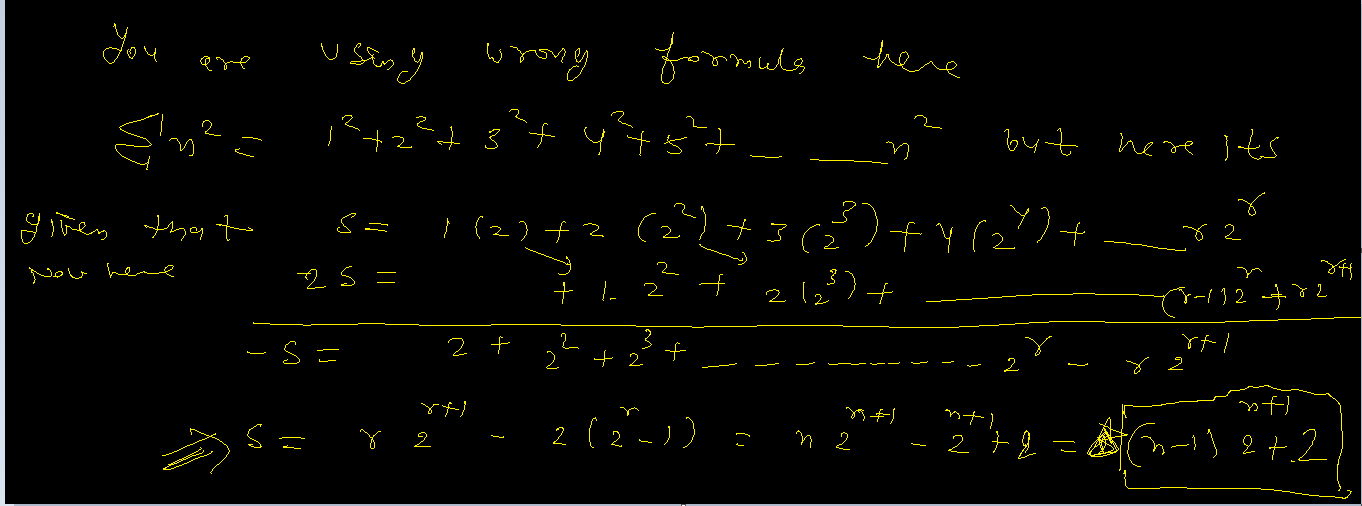 You are using wrong formula here
Σn² = 1² + 2² + 3² + 4² + 5² + _ __ n² but here its
given that S = 1(2) + 2(2²) + 3(2³) + 4(2⁴) + ___ r2^r
Now here 2S = + 1. 2² + 2(2³) + ______ (r-1)2^r + r2^(r+1)
-S = 2 + 2² + 2³ + _ - - - - - - - - - - 2^r - r2^(r+1)
⇒ S = r2^(r+1) - 2(2^r - 1) = n2^(n+1) - 2^(n+1) + 2 = (n-1)2^(n+1) + 2